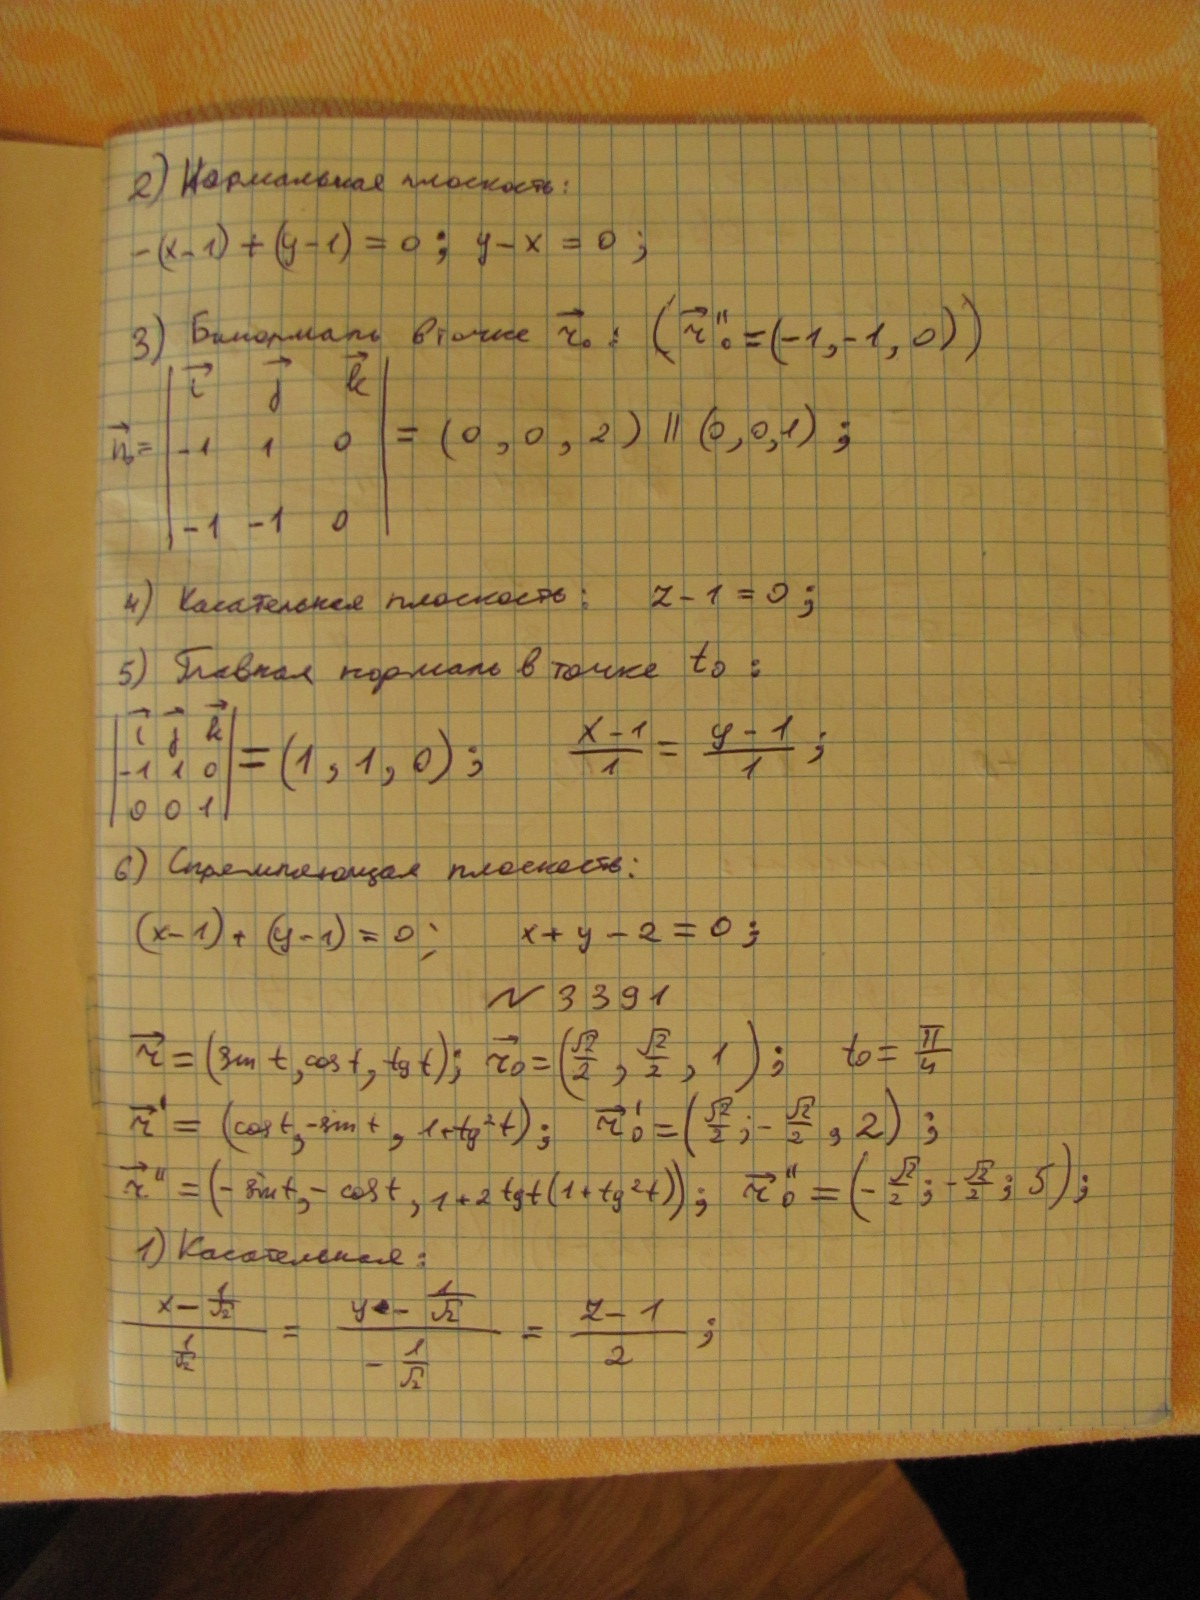 2) Нормальная плоскость:
-(x-1)+(y-1)=0; y-x=0;
3) Бинормаль в точке r⃗₀: (r⃗₀''=(-1,-1,0))
i⃗ j⃗ k⃗
n⃗= -1 1 0 = (0,0,2) || (0,0,1);
-1 -1 0
4) Касательная плоскость: z-1=0;
5) Главная нормаль в точке t₀:
|i⃗ j⃗ k⃗|
|-1 1 0| = (1,1,0); (x-1)/1 = (y-1)/1;
|0 0 1|
6) Спремляющая плоскость:
(x-1)+(y-1)=0; x+y-2=0;
N 3391
r⃗=(sin t, cos t, tg t); r⃗₀=(√2/2, √2/2, 1); t₀=π/4
r⃗'=(cos t, -sin t, 1+tg²t); r⃗₀'=(√2/2; -√2/2, 2);
r⃗''=(-sin t, -cos t, 1+2tgt(1+tg²t)); r⃗₀''=(-√2/2; -√2/2; 5);
1) Касательная:
(x-1/√2)/(1/√2) = (y-1/√2)/(-1/√2) = (z-1)/2;